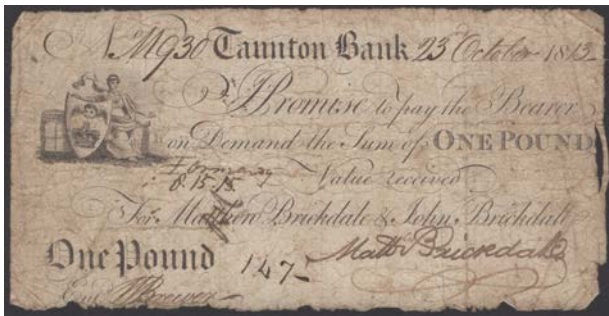 No M930 Taunton Bank 23 October 1813
I Promise to pay the Bearer
on Demand the Sum of ONE POUND
8.15.15 Value received
For Matthew Brickdale & John Brickdale
One Pound 147 Matt Brickdale
Entd Brewer